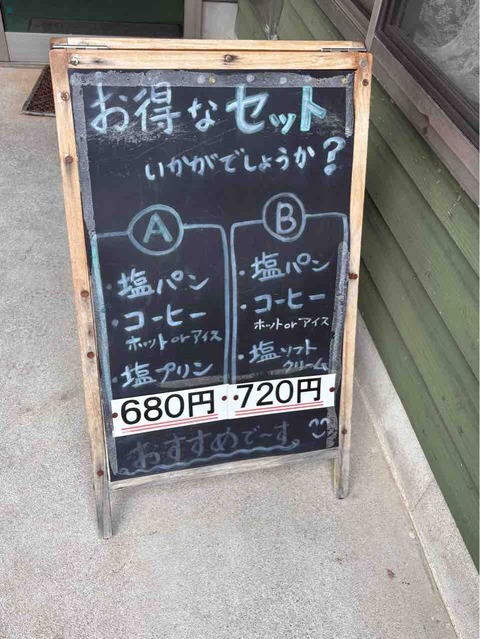 お得なセット
いかがでしょうか?
A
・塩パン
・コーヒー
ホットorアイス
・塩プリン
680円
B
・塩パン
・コーヒー
ホットorアイス
・塩ソフト
クリーム
720円
おすすめで〜す。